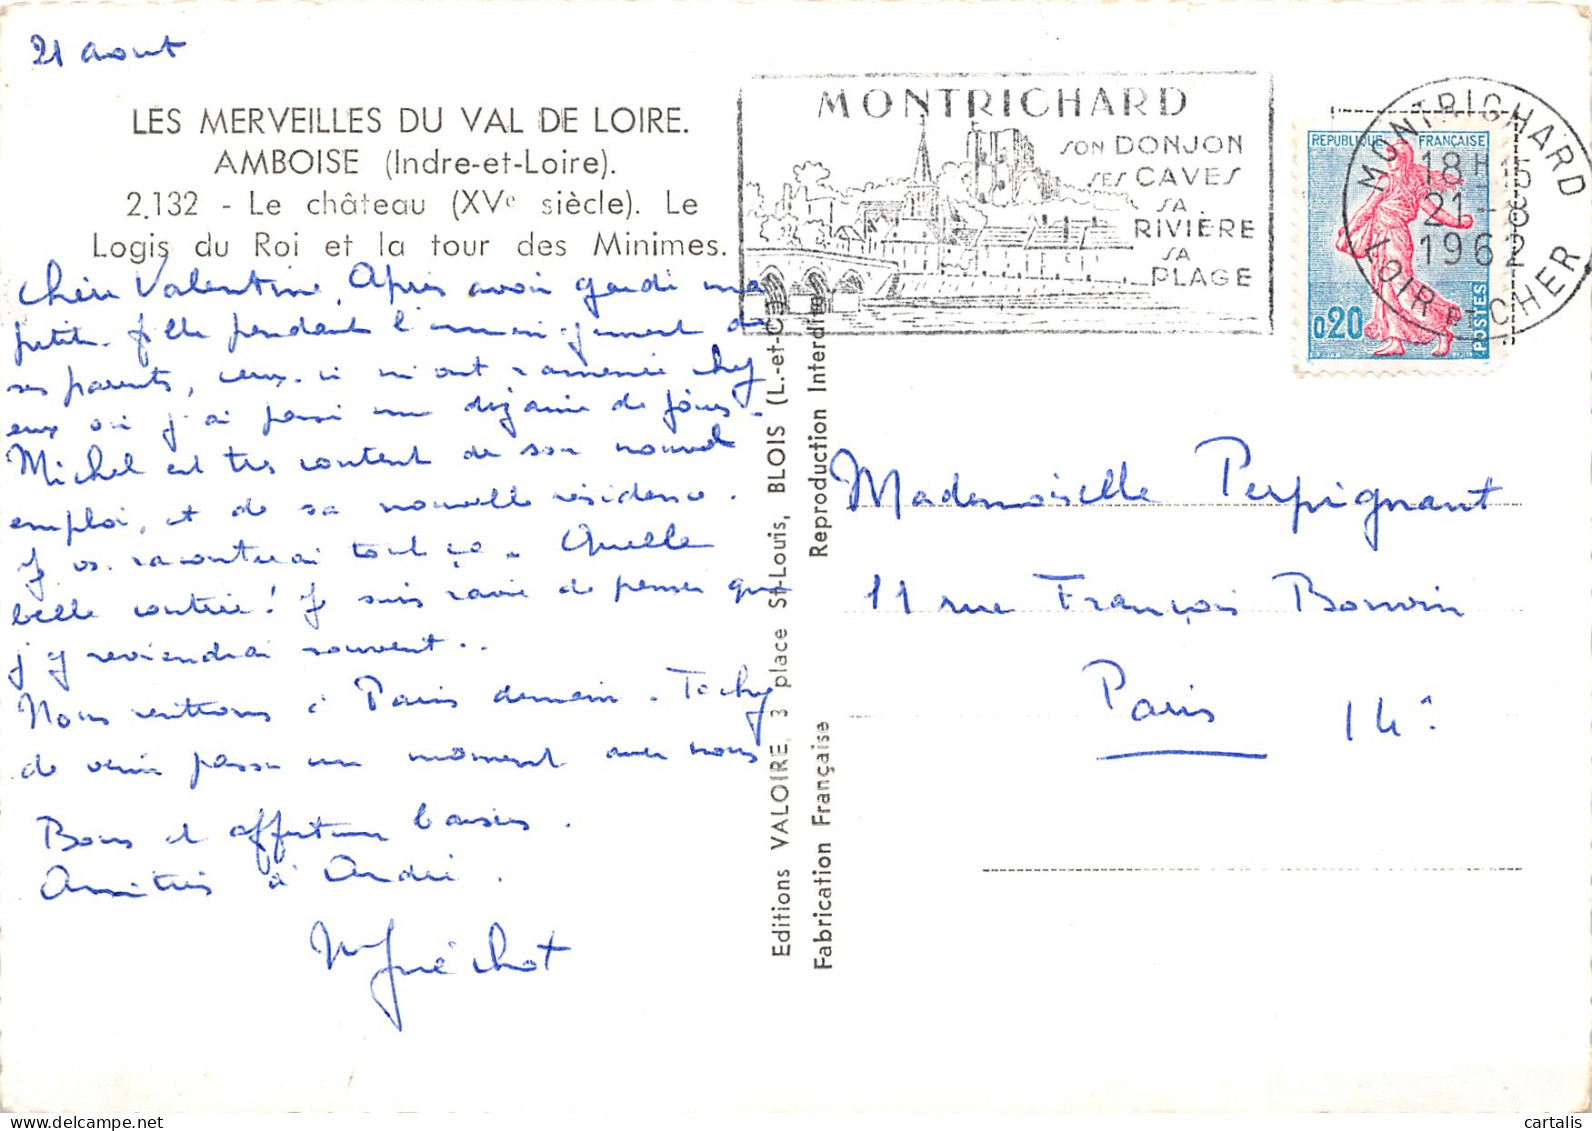 21 aout
LES MERVEILLES DU VAL DE LOIRE.
AMBOISE (Indre-et-Loire).
2.132 - Le château (XVe siècle). Le
Logis du Roi et la tour des Minimes.
Chère Valentine, Après avoir gardé ma
petite fille pendant l'emménagement de
ses parents, ceux-ci m'ont ramenée chez
eux où j'ai passé une dizaine de jours.
Michel est très content de son nouvel
emploi, et de sa nouvelle résidence.
Je vs. raconterai tout ça. Quelle
belle contrée! Je suis ravie de penser que
j'y reviendrai souvent..
Nous rentrons à Paris demain. Tachez
de venir passer un moment avec nous
Bons et affectueux baisers.
Amitiés à André.
Guéchot
Editions VALOIRE, 3 place St-Louis, BLOIS (L.-et-C.)
Fabrication Française
Reproduction Interdite
MONTRICHARD
SON DONJON
SES CAVES
SA
RIVIÈRE
SA
PLAGE
MONTRICHARD
18H15
21-8
1962
LOIR ET CHER
REPUBLIQUE FRANÇAISE
0,20
POSTES
Mademoiselle Perpignant
11 rue François Bonvin
Paris 14e
cartalis